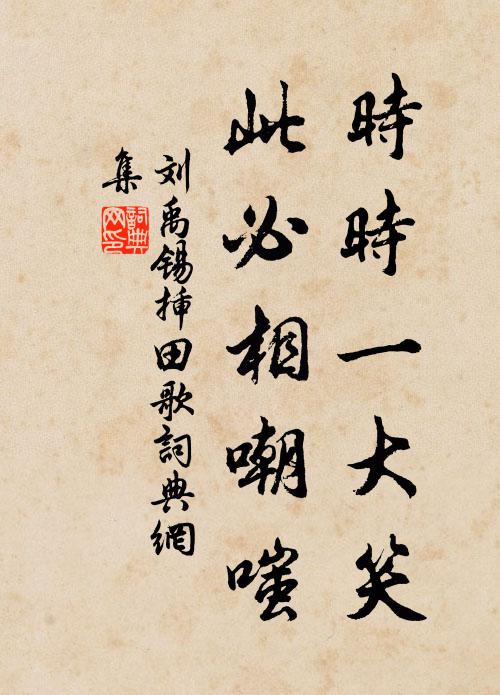 時時一大笑
此必相嘲嗤
刘禹锡插田歌詞典網
集
詞典
网印